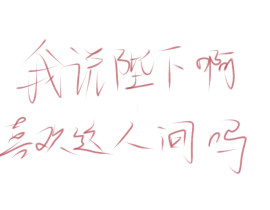 我说陛下啊
喜欢这人间吗